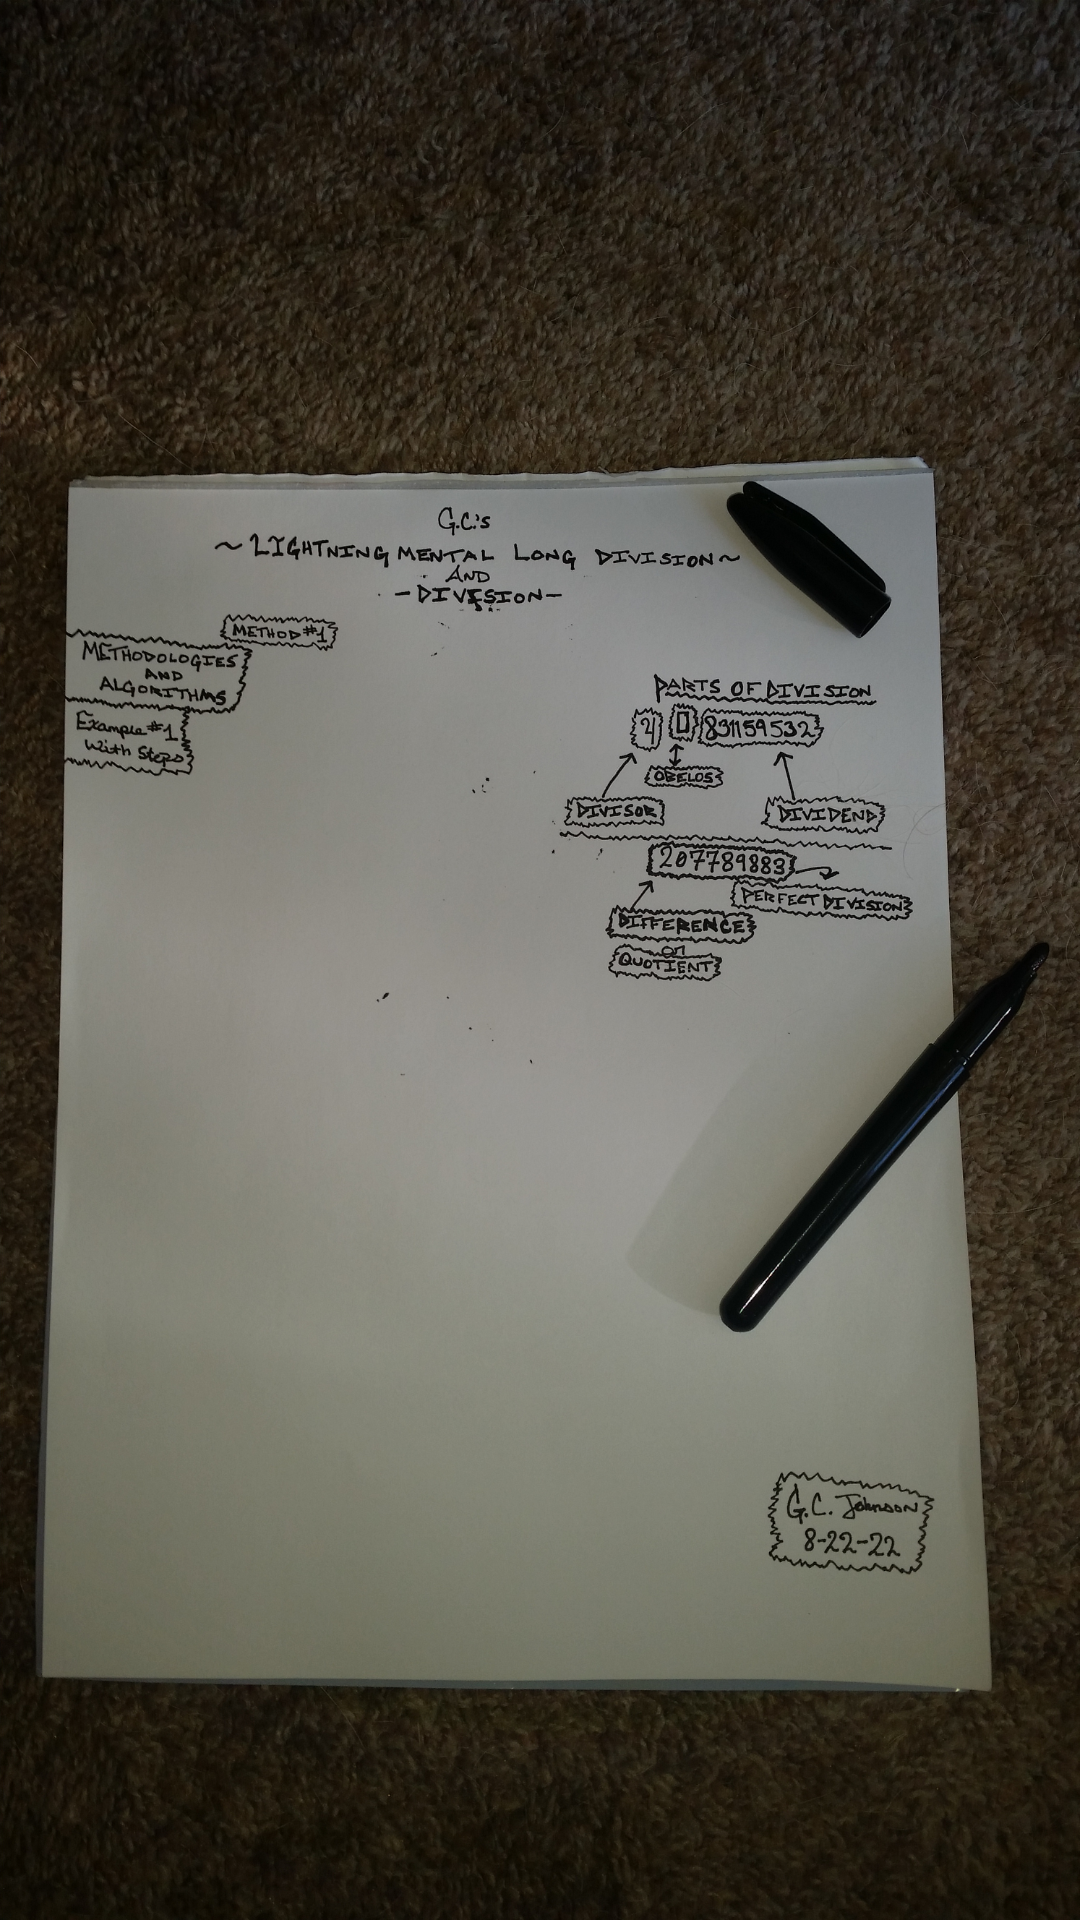 G.C.'s
~ LIGHTNING MENTAL LONG DIVISION ~
AND
- DIVISION -
METHOD #1
METHODOLOGIES
AND
ALGORITHMS
Example #1
With Steps
PARTS OF DIVISION
4 831159532
OBELOS
DIVISOR
DIVIDEND
207789883
PERFECT DIVISION
DIFFERENCE
or
QUOTIENT
G.C. Johnson
8-22-22